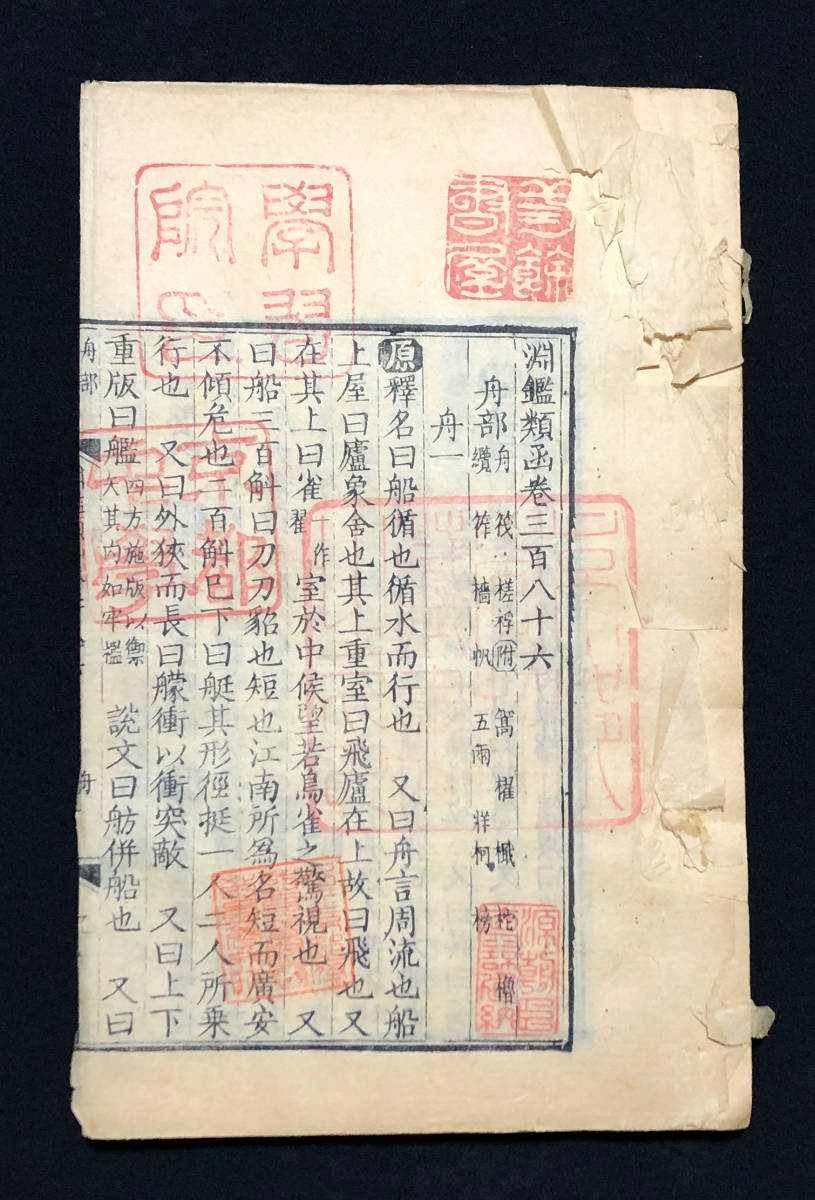 淵鑑類函卷三百八十六
舟部 舟 筏 槎 桴 附 篙 櫂 檝 柁 櫓
纜 笮 檣 帆 五兩 牂柯 榜
舟一
原 釋名曰船循也循水而行也 又曰舟言周流也船
上屋曰廬象舍也其上重室曰飛廬在上故曰飛也又
在其上曰雀 一作翟 室於中候望若鳥雀之驚視也 又
曰船三百斛曰刀刀貂也貂短也江南所爲名短而廣安
不傾危也二百斛已下曰艇其形徑挺一人二人所乗
行也 又曰外狹而長曰艨衝以衝突敵 又曰上下
重版曰艦 四方施版以禦矢其内如牢檻 説文曰舫併船也 又曰
舟部
舟
學習院印
幸餘書屋